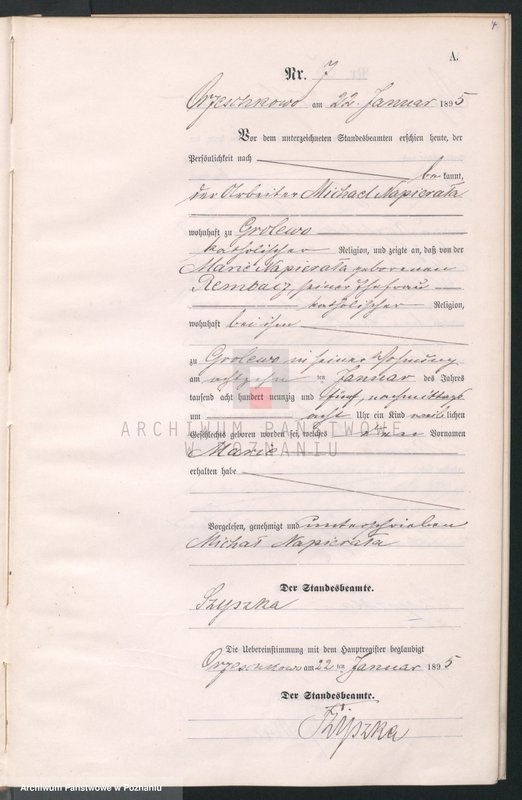 4
A.
Nr. 7
Orzeschkowo am 22. Januar 1895
Vor dem unterzeichneten Standesbeamten erschien heute, der
Persönlichkeit nach
be kannt,
der Arbeiter Michael Napierała
wohnhaft zu Grolewo
katholischer Religion, und zeigte an, daß von der
Marie Napierała geborenen
Rembacz, seiner Ehefrau
katholischer Religion,
wohnhaft bei ihm
zu Grolewo in seiner Wohnung
am achtzehn ten Januar des Jahres
tausend acht hundert neunzig und fünf, nachmittags
um acht Uhr ein Kind weiblichen
Geschlechts geboren worden sei, welches den Vornamen
Marie
erhalten habe
Vorgelesen, genehmigt und unterschrieben
Michał Napierała
Der Standesbeamte.
Szyszka
Die Uebereinstimmung mit dem Hauptregister beglaubigt
Orzeschkowo am 22 ten Januar 1895
Der Standesbeamte.
Szyszka
ARCHIWUM PAŃSTWOWE
W POZNANIU
Archiwum Państwowe w Poznaniu